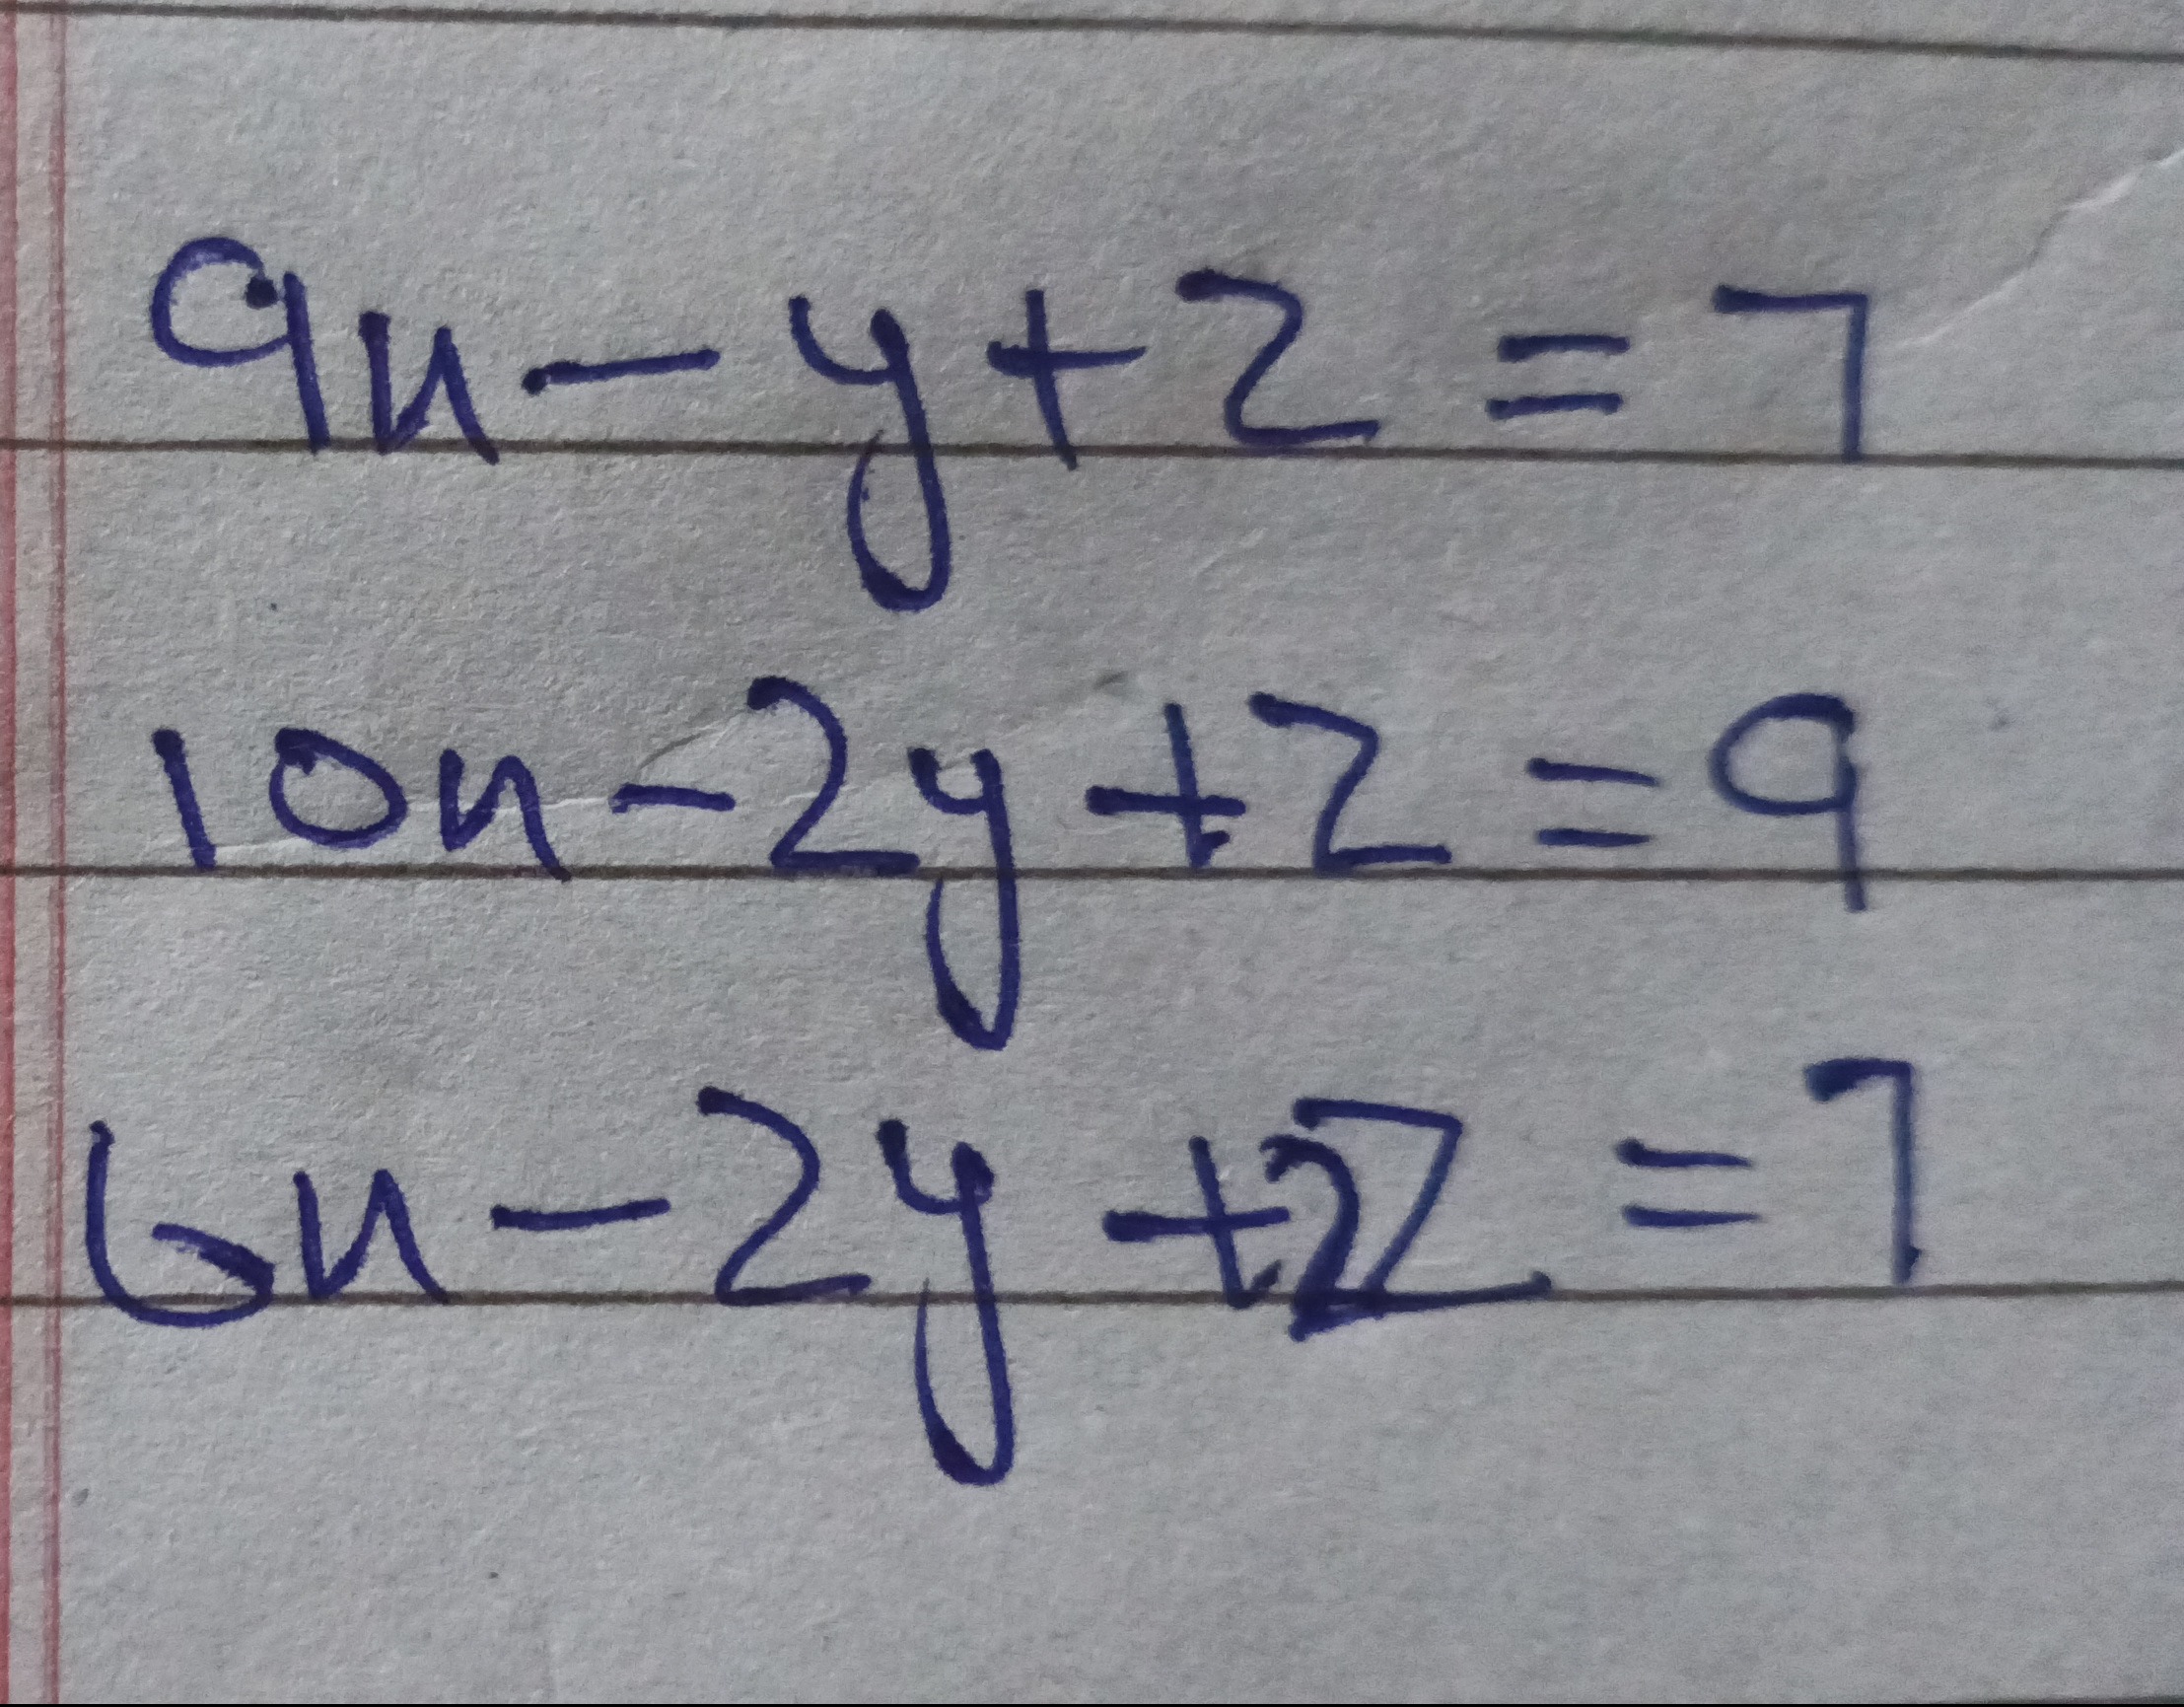 9x - y + z = 7
10x - 2y + z = 9
6x - 2y + 2z = 7